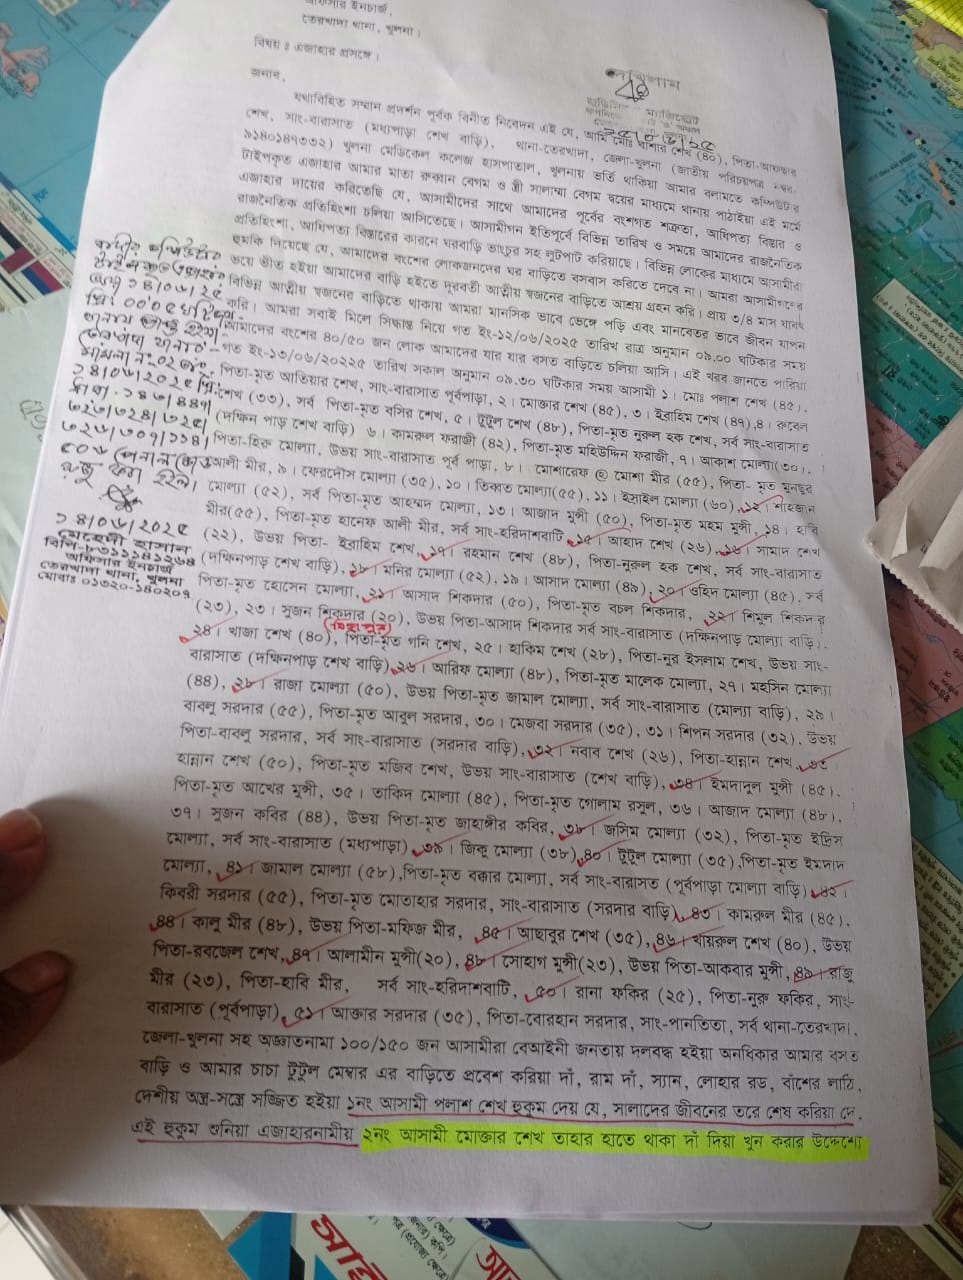 অফিসার ইনচার্জ,
তেরখাদা থানা, খুলনা।
বিষয় ঃ এজাহার প্রসঙ্গে।
জনাব,
যথাবিহিত সম্মান প্রদর্শন পূর্বক বিনীত নিবেদন এই যে, আমি মোঃ বাশার শেখ (৪০), পিতা-আফছার
শেখ, সাং-বারাসাত (মধ্যপাড়া শেখ বাড়ি), থানা-তেরখাদা, জেলা-খুলনা (জাতীয় পরিচয়পত্র নম্বর-
খুলনা মেডিকেল কলেজ হাসপাতাল, খুলনায় ভর্তি থাকিয়া আমার বলামতে কম্পিউটার
টাইপকৃত এজাহার আমার মাতা রুব্বান বেগম ও স্ত্রী সালমা বেগম দ্বয়ের মাধ্যমে থানায় পাঠাইয়া এই মর্মে
এজাহার দায়ের করিতেছি যে, আসামীদের সাথে আমাদের পূর্বের বংশগত শত্রুতা, আধিপত্য বিস্তার ও
রাজনৈতিক প্রতিহিংসা চলিয়া আসিতেছে। আসামীগন ইতিপূর্বে বিভিন্ন তারিখ ও সময়ে আমাদের রাজনৈতিক
প্রতিহিংসা, আধিপত্য বিস্তারের কারনে ঘরবাড়ি ভাংচুর সহ লুটপাট করিয়াছে। বিভিন্ন লোকের মাধ্যমে আসামীরা
হুমকি দিয়েছে যে, আমাদের বংশের লোকজনদের ঘর বাড়িতে বসবাস করিতে দেবে না। আমরা আসামীগনের
ভয়ে ভীত হইয়া আমাদের বাড়ি হইতে দূরবর্তী আত্মীয় স্বজনের বাড়িতে আশ্রয় গ্রহন করি। প্রায় ৩/৪ মাস যাবৎ
বিভিন্ন আত্মীয় স্বজনের বাড়িতে থাকায় আমরা মানসিক ভাবে ভেঙ্গে পড়ি এবং মানবেতর ভাবে জীবন যাপন
করি। আমরা সবাই মিলে সিদ্ধান্ত নিয়ে গত ইং-১২/০৬/২০২৫ তারিখ রাত্র অনুমান ০৯.০০ ঘটিকার সময়
আমাদের বংশের ৪০/৫০ জন লোক আমাদের যার যার বসত বাড়িতে চলিয়া আসি। এই খবর জানতে পারিয়া
গত ইং-১৩/০৬/২০২২৫ তারিখ সকাল অনুমান ০৯.৩০ ঘটিকার সময় আসামী ১। মোঃ পলাশ শেখ (৪৫),
পিতা-মৃত আতিয়ার শেখ, সাং-বারাসাত পূর্বপাড়া, ২। মোক্তার শেখ (৪৫), ৩। ইব্রাহিম শেখ (৪৭),৪। রুবেল
শেখ (৩৩), সর্ব পিতা-মৃত বসির শেখ, ৫। টুটুল শেখ (৪৮), পিতা-মৃত নুরুল হক শেখ, সর্ব সাং-বারাসাত
(দক্ষিন পাড় শেখ বাড়ি) ৬। কামরুল ফরাজী (৪২), পিতা-মৃত মহিউদ্দিন ফরাজী, ৭। আকাশ মোল্যা(৩০),
পিতা-হিরু মোল্যা, উভয় সাং-বারাসাত পূর্ব পাড়া, ৮। মোশারেফ @ মোশা মীর (৫৫), পিতা- মৃত মুনছুর
আলী মীর, ৯। ফেরদৌস মোল্যা (৩৫), ১০। তিব্বত মোল্যা(৫৫), ১১। ইসাইল মোল্যা (৬০), ১২। শাহজান
মোল্যা (৫২), সর্ব পিতা-মৃত আহম্মদ মোল্যা, ১৩। আজাদ মুন্সী (৫০), পিতা-মৃত মহম মুন্সী, ১৪। হাবি
মীর(৫৫), পিতা-মৃত হানেফ আলী মীর, সর্ব সাং-হরিদাশবাটি, ১৫। আহাদ শেখ (২৬), ১৬। সামাদ শেখ
(২২), উভয় পিতা- ইব্রাহিম শেখ, ১৭। রহমান শেখ (৪৮), পিতা-নুরুল হক শেখ, সর্ব সাং-বারাসাত
(দক্ষিনপাড় শেখ বাড়ি), ১৮। মনির মোল্যা (৫২), ১৯। আসাদ মোল্যা (৪৯), ২০। ওহিদ মোল্যা (৪৫), সর্ব
পিতা-মৃত হোসেন মোল্যা, ২১। আসাদ শিকদার (৫০), পিতা-মৃত বচল শিকদার, ২২। শিমুল শিকদার
(২৩), ২৩। সুজন শিকদার (২০), উভয় পিতা-আসাদ শিকদার সর্ব সাং-বারাসাত (দক্ষিনপাড় মোল্যা বাড়ি),
২৪। খাজা শেখ (৪০), পিতা-মৃত গনি শেখ, ২৫। হাকিম শেখ (২৮), পিতা-নুর ইসলাম শেখ, উভয় সাং-
বারাসাত (দক্ষিনপাড় শেখ বাড়ি), ২৬। আরিফ মোল্যা (৪৮), পিতা-মৃত মালেক মোল্যা, ২৭। মহসিন মোল্যা
(৪৪), ২৮। রাজা মোল্যা (৫০), উভয় পিতা-মৃত জামাল মোল্যা, সর্ব সাং-বারাসাত (মোল্যা বাড়ি), ২৯।
বাবলু সরদার (৫৫), পিতা-মৃত আবুল সরদার, ৩০। মেজবা সরদার (৩৫), ৩১। শিপন সরদার (৩২), উভয়
পিতা-বাবলু সরদার, সর্ব সাং-বারাসাত (সরদার বাড়ি), ৩২। নবাব শেখ (২৬), পিতা-হান্নান শেখ, ৩৩।
হান্নান শেখ (৫০), পিতা-মৃত মজিব শেখ, উভয় সাং-বারাসাত (শেখ বাড়ি), ৩৪। ইমদাদুল মুন্সী (৪৫),
পিতা-মৃত আখের মুন্সী, ৩৫। তাকিদ মোল্যা (৪৫), পিতা-মৃত গোলাম রসুল, ৩৬। আজাদ মোল্যা (৪৮),
৩৭। সুজন কবির (৪৪), উভয় পিতা-মৃত জাহাঙ্গীর কবির, ৩৮। জসিম মোল্যা (৩২), পিতা-মৃত ইদ্রিস
মোল্যা, সর্ব সাং-বারাসাত (মধ্যপাড়া), ৩৯। জিকু মোল্যা (৩৮), ৪০। টুটুল মোল্যা (৩৫),পিতা-মৃত ইমদাদ
মোল্যা, ৪১। জামাল মোল্যা (৫৮),পিতা-মৃত বক্কার মোল্যা, সর্ব সাং-বারাসাত (পূর্বপাড়া মোল্যা বাড়ি), ৪২।
কিবরী সরদার (৫৫), পিতা-মৃত মোতাহার সরদার, সাং-বারাসাত (সরদার বাড়ি), ৪৩। কামরুল মীর (৪৫),
৪৪। কালু মীর (৪৮), উভয় পিতা-মফিজ মীর, ৪৫। আহাবুর শেখ (৩৫), ৪৬। খায়রুল শেখ (৪০), উভয়
পিতা-রবজেল শেখ, ৪৭। আলামীন মুন্সী(২০), ৪৮। সোহাগ মুন্সী(২৩), উভয় পিতা-আকবার মুন্সী, ৪৯। রাজু
মীর (২৩), পিতা-হাবি মীর, সর্ব সাং-হরিদাশবাটি, ৫০। রানা ফকির (২৫), পিতা-নুরু ফকির, সাং-
বারাসাত (পূর্বপাড়া), ৫১। আক্তার সরদার (৩৫), পিতা-বোরহান সরদার, সাং-পানতিতা, সর্ব থানা-তেরখাদা,
জেলা-খুলনা সহ অজ্ঞাতনামা ১০০/১৫০ জন আসামীরা বেআইনী জনতায় দলবদ্ধ হইয়া অনধিকার আমার বসত
বাড়ি ও আমার চাচা টুটুল মেম্বার এর বাড়িতে প্রবেশ করিয়া দাঁ, রাম দাঁ, স্যান, লোহার রড, বাঁশের লাঠি,
দেশীয় অস্ত্র-সস্ত্রে সজ্জিত হইয়া ১নং আসামী পলাশ শেখ হুকুম দেয় যে, সালাদের জীবনের তরে শেষ করিয়া দে,
এই হুকুম শুনিয়া এজাহারনামীয় ২নং আসামী মোক্তার শেখ তাহার হাতে থাকা দাঁ দিয়া খুন করার উদ্দেশ্যে
১৪/০৬/২০২৫
অফিসার ইনচার্জ
তেরখাদা থানা, খুলনা